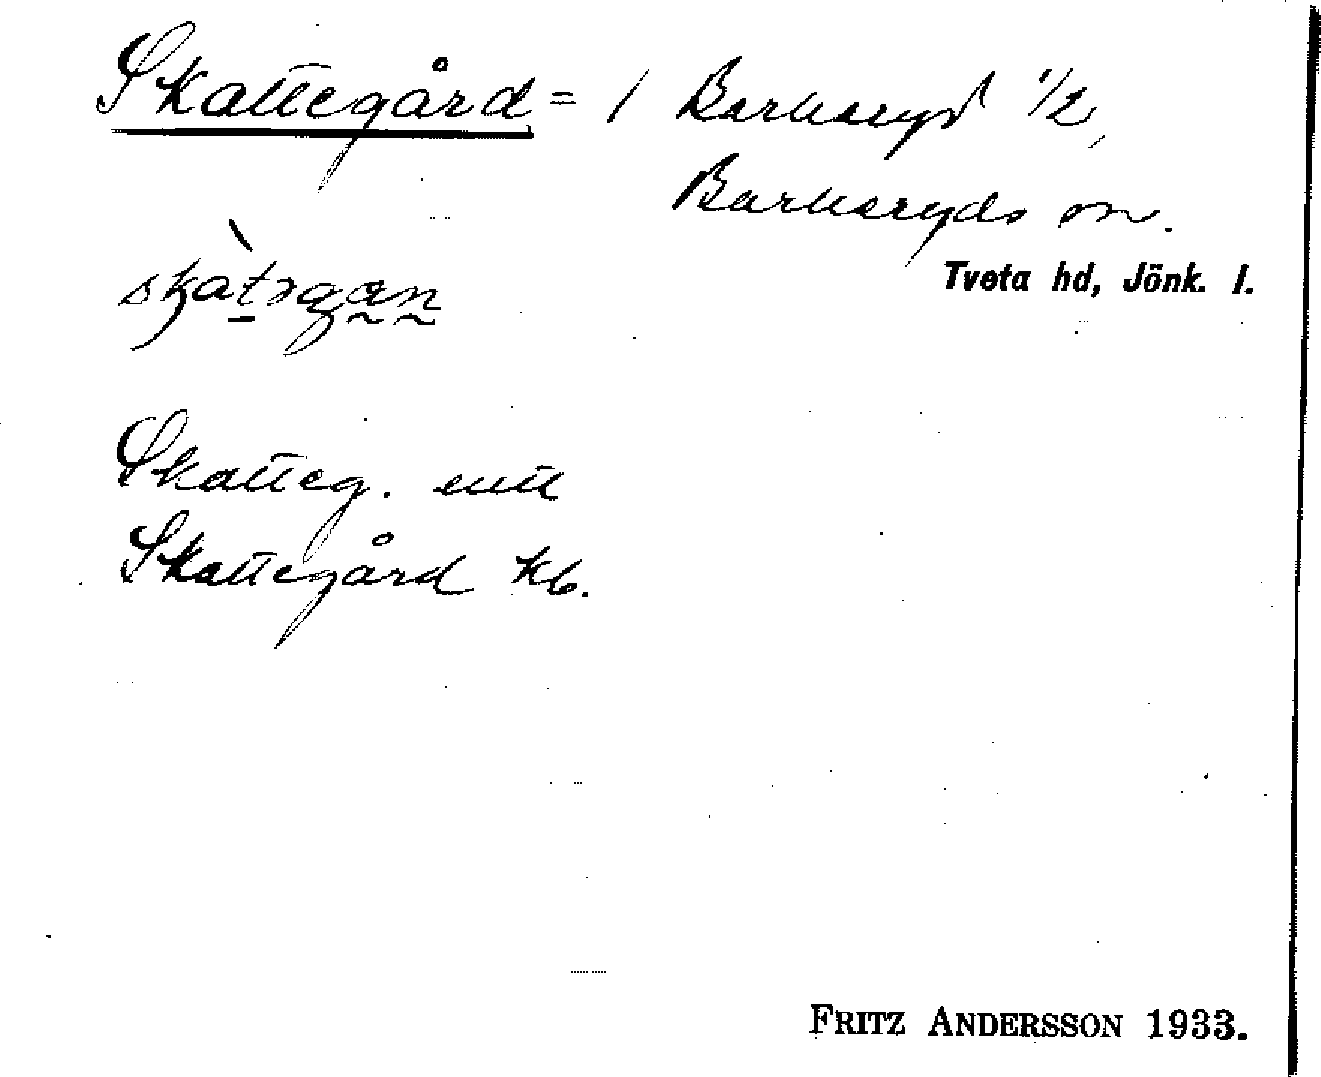 Skattegård = 1 Barkeryd 1/2,
Barkeryds sn.
Tveta hd, Jönk. l.
skàtəgan
Skatteg. mtl
Skattegård kb.
FRITZ ANDERSSON 1933.